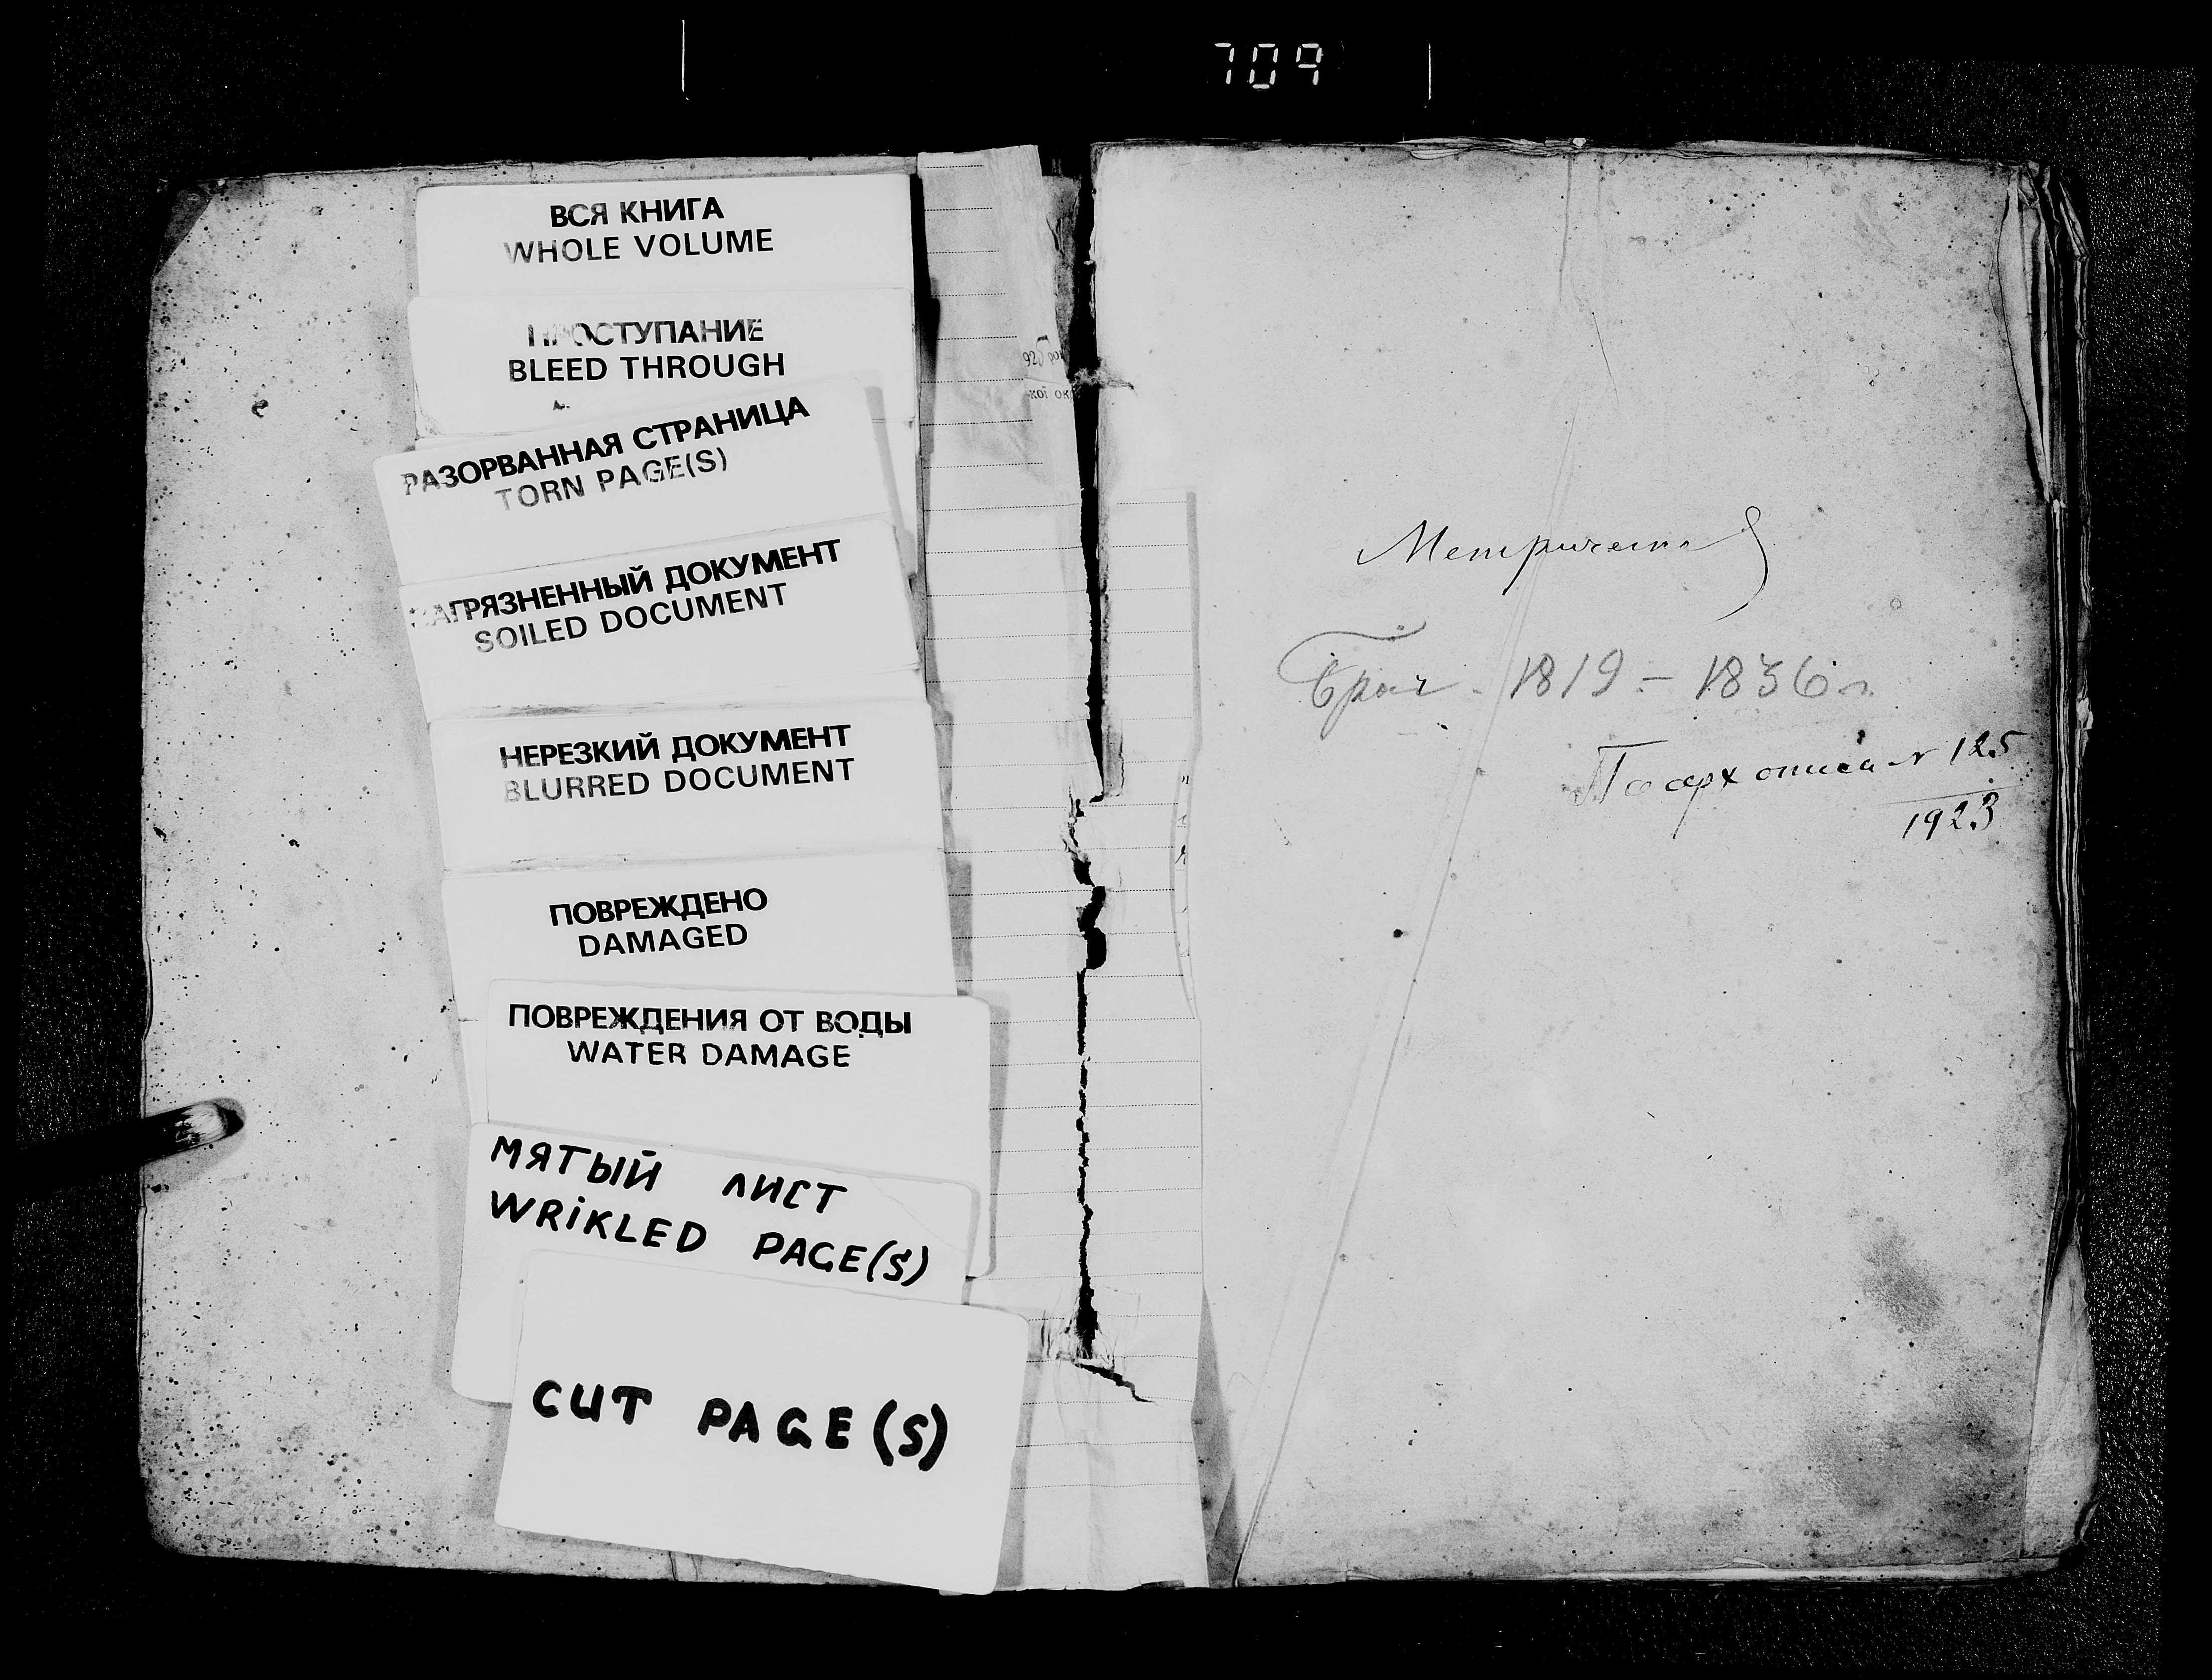 709
ВСЯ КНИГА
WHOLE VOLUME
ПРОСТУПАНИЕ
BLEED THROUGH
РАЗОРВАННАЯ СТРАНИЦА
TORN PAGE(S)
ЗАГРЯЗНЕННЫЙ ДОКУМЕНТ
SOILED DOCUMENT
НЕРЕЗКИЙ ДОКУМЕНТ
BLURRED DOCUMENT
ПОВРЕЖДЕНО
DAMAGED
ПОВРЕЖДЕНИЯ ОТ ВОДЫ
WATER DAMAGE
МЯТЫЙ ЛИСТ
WRiKLED PAGE(S)
CUT PAGE(S)
Брач. 1819 – 1836 г.
По арх описи № 125
1923